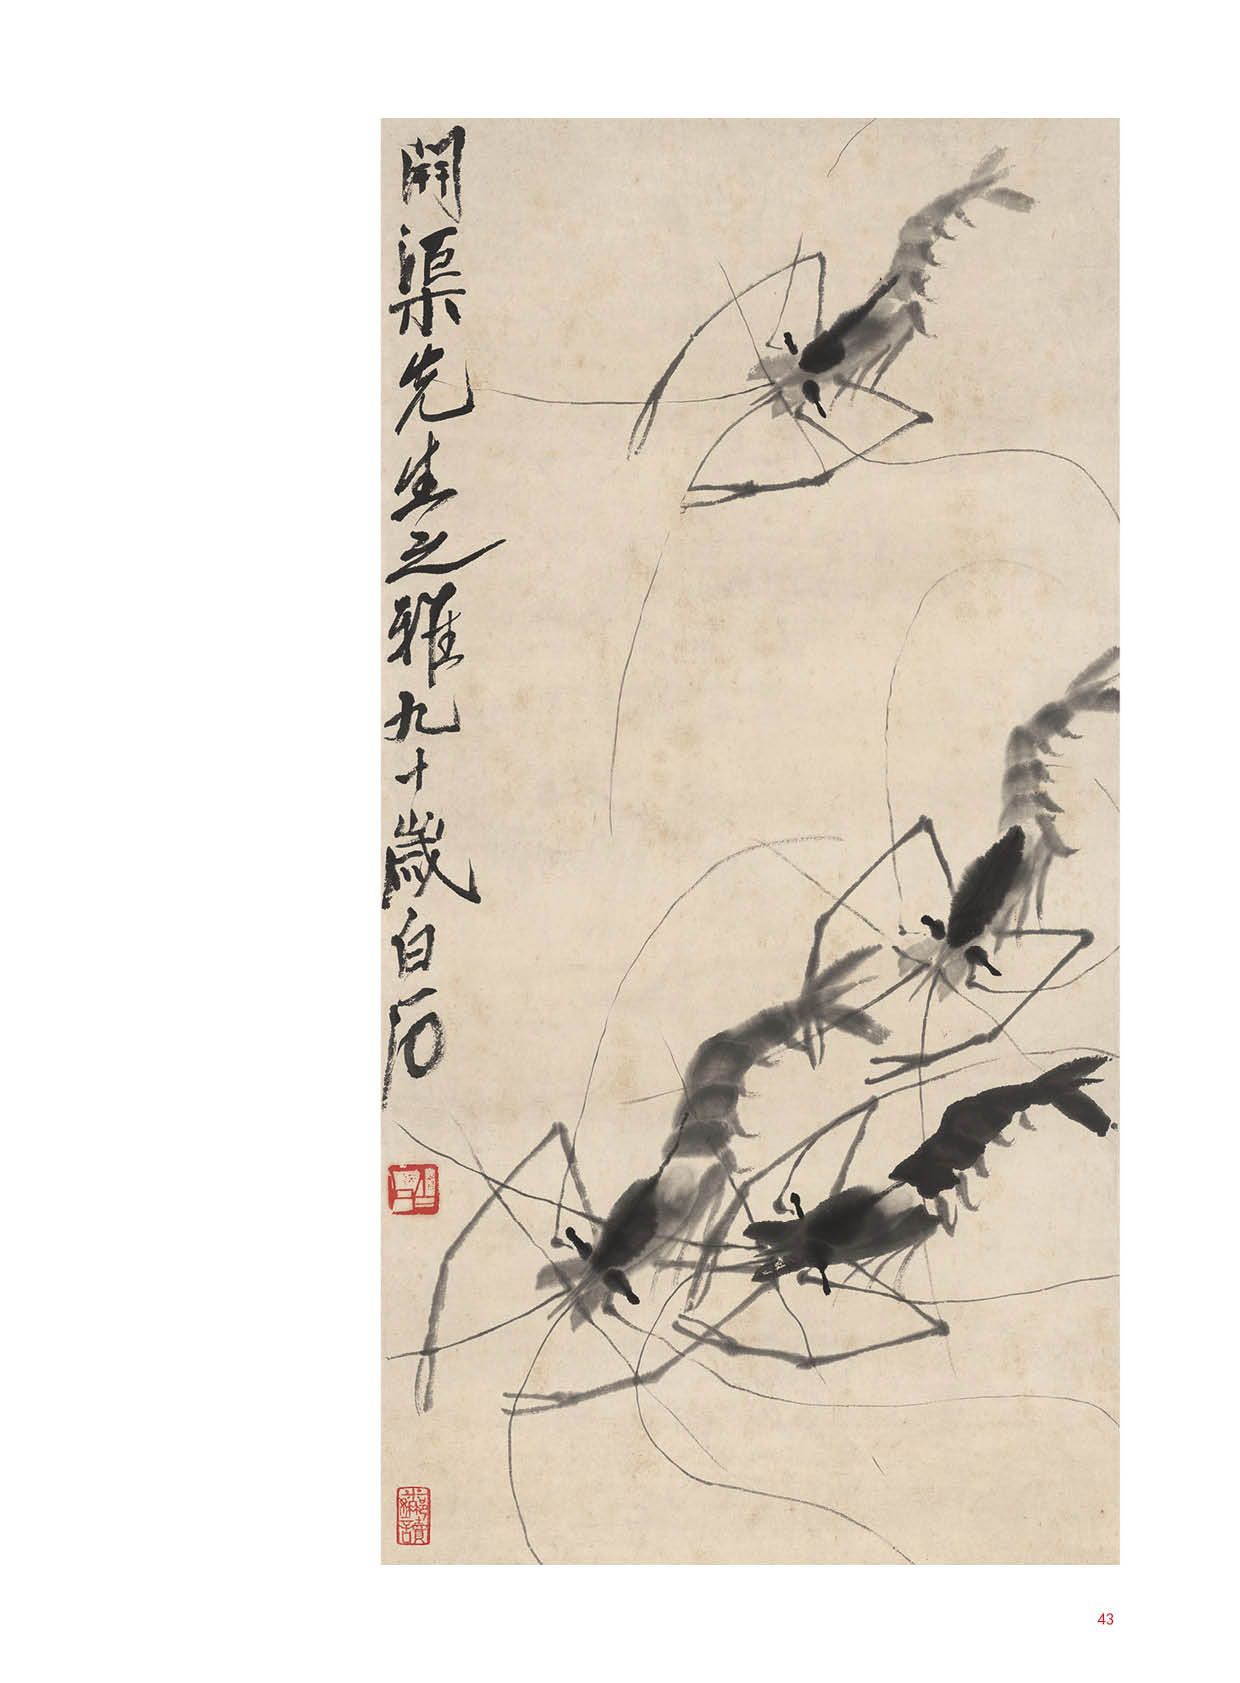 開渠先生之雅九十歲白石
43